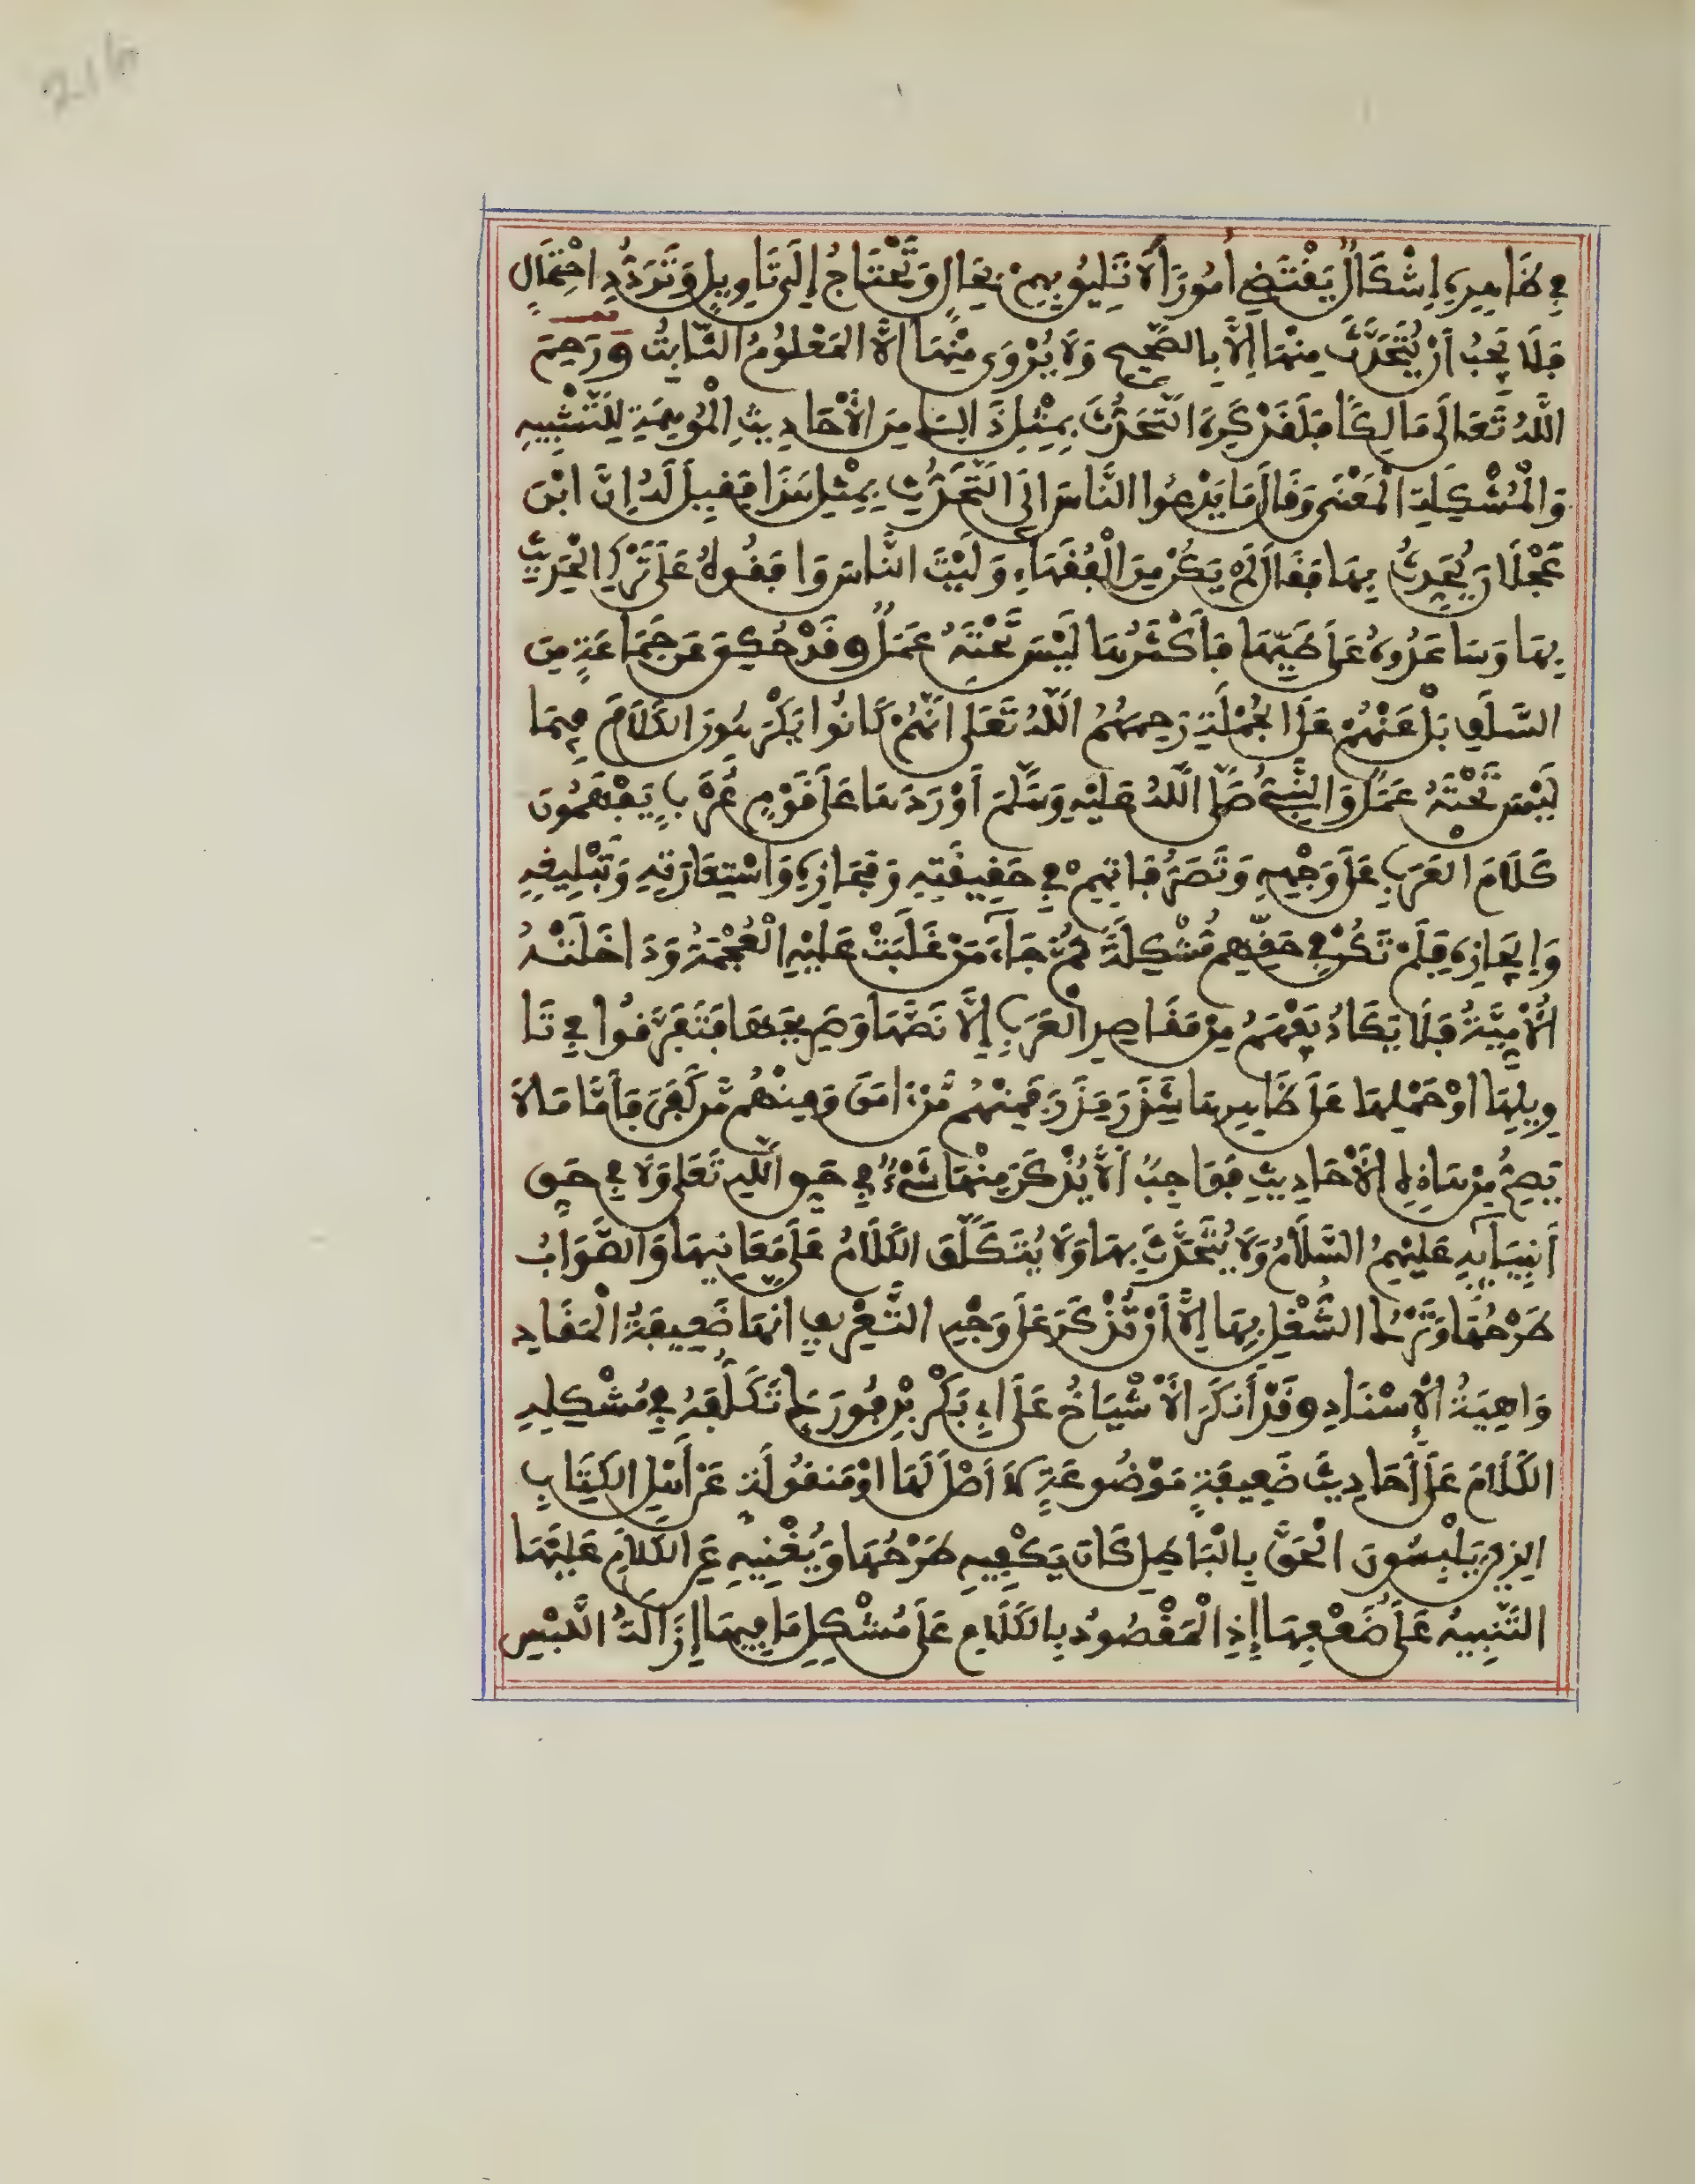 216
في ظَاهِرِهِ إِشْكَالٌ يَقْتَضِي أُمُورًا لَا تَلِيقُ بِهِمْ بِحَالٍ وَتَحْتَاجُ إِلَى تَاوِيلٍ وَتَرَدُّدِ احْتِمَالٍ
فَلَا يَجِبُ أَنْ يُتَحَدَّثَ مِنْهَا إِلَّا بِالصَّحِيحِ وَلَا يُرْوَى مِنْهَا إِلَّا الْمَعْلُومُ الثَّابِتُ وَرَحِمَ
اللَّهُ تَعَالَى مَالِكًا فَلَقَدْ كَرِهَ التَّحَدُّثَ بِمِثْلِ ذَالِكَ مِنَ الْأَحَادِيثِ الْمُوهِمَةِ لِلتَّشْبِيهِ
وَالْمُشْكِلَةِ الْمَعْنَى وَقَالَ مَا يَدْعُوا النَّاسَ إِلَى التَّحَدُّثِ بِمِثْلِ هَذَا فَقِيلَ لَهُ إِنَّ ابْنَ
عَجْلَانَ يُحَدِّثُ بِهَا فَقَالَ لَمْ يَكُنْ مِنَ الْفُقَهَاءِ وَلَيْتَ النَّاسَ وَافَقُوهُ عَلَى تَرْكِ الْحَدِيثِ
بِهَا وَسَاعَدُوهُ عَلَى طَيِّهَا فَأَكْثَرُهَا لَيْسَ تَحْتَهُ عَمَلٌ وَقَدْ حُكِيَ عَنْ جَمَاعَةٍ مِنَ
السَّلَفِ بَلْ عَنْهُمْ عَلَى الْجُمْلَةِ رَحِمَهُمُ اللَّهُ تَعَلَى أَنَّهُمْ كَانُوا يَكْرَهُونَ الْكَلَامَ فِيمَا
لَيْسَ تَحْتَهُ عَمَلٌ وَالنَّبِيُّ صَلَّى اللَّهُ عَلَيْهِ وَسَلَّمَ أَوْرَدَهَا عَلَى قَوْمٍ عَرَبٍ يَفْهَمُونَ
كَلَامَ الْعَرَبِ عَلَى وَجْهِهِ وَتَصَرُّفَاتِهِمْ فِي حَقِيقَتِهِ وَمَجَازِهِ وَاسْتِعَارَتِهِ وَتَبْلِيغِهِ
وَإِيجَازِهِ فَلَمْ تَكُنْ فِي حَقِّهِمْ مُشْكِلَةً ثُمَّ جَاءَ مَنْ غَلَبَتْ عَلَيْهِ الْعُجْمَةُ وَدَاخَلَتْهُ
الْأُمِّيَّةُ فَلَا يَكَادُ يَفْهَمُ مِنْ مَقَاصِدِ الْعَرَبِ إِلَّا نَصَّهَا وَصَرِيحَهَا فَتَفَرَّقُوا فِي تَا
وِيلِهَا أَوْ حَمْلِهَا عَلَى ظَاهِرِهَا شَذَرَ مَذَرَ فَمِنْهُمْ مَنْ ءَامَنَ وَمِنْهُمْ مَنْ كَفَرَ فَأَمَّا مَا لَا
يَصِحُّ مِنْ هَاذِهِ الْأَحَادِيثِ فَوَاجِبٌ أَلَّا يُذْكَرَ مِنْهَا شَيْءٌ فِي حَقِّ اللَّهِ تَعَلَى وَلَا فِي حَقِّ
أَنْبِيَائِهِ عَلَيْهِمُ السَّلَامُ وَلَا يُتَحَدَّثَ بِهَا وَلَا يُتَكَلَّفَ الْكَلَامُ عَلَى مَعَانِيهَا وَالصَّوَابُ
طَرْحُهَا وَتَرْكُ الشُّغْلِ بِهَا إِلَّا أَنْ تُذْكَرَ عَلَى وَجْهِ التَّعْرِيفِ أَنَّهَا ضَعِيفَةُ الْمَقَادِ
وَاهِيَةُ الْإِسْنَادِ وَقَدْ أَنْكَرَ الْأَشْيَاخُ عَلَى أَبِي بَكْرِ بْنِ فُورَكٍ تَكَلُّفَهُ فِي مُشْكِلِهِ
الْكَلَامَ عَلَى أَحَادِيثَ ضَعِيفَةٍ مَوْضُوعَةٍ لَا أَصْلَ لَهَا أَوْ مَنْقُولَةٍ عَنْ أَهْلِ الْكِتَابِ
الَّذِينَ يَلْبِسُونَ الْحَقَّ بِالْبَاطِلِ كَانَ يَكْفِيهِ طَرْحُهَا وَيُغْنِيهِ عَنِ الْكَلَامِ عَلَيْهَا
التَّنْبِيهُ عَلَى ضَعْفِهَا إِذِ الْمَقْصُودُ بِالْكَلَامِ عَلَى مُشْكِلِ مَا فِيهَا إِزَالَةُ اللَّبْسِ